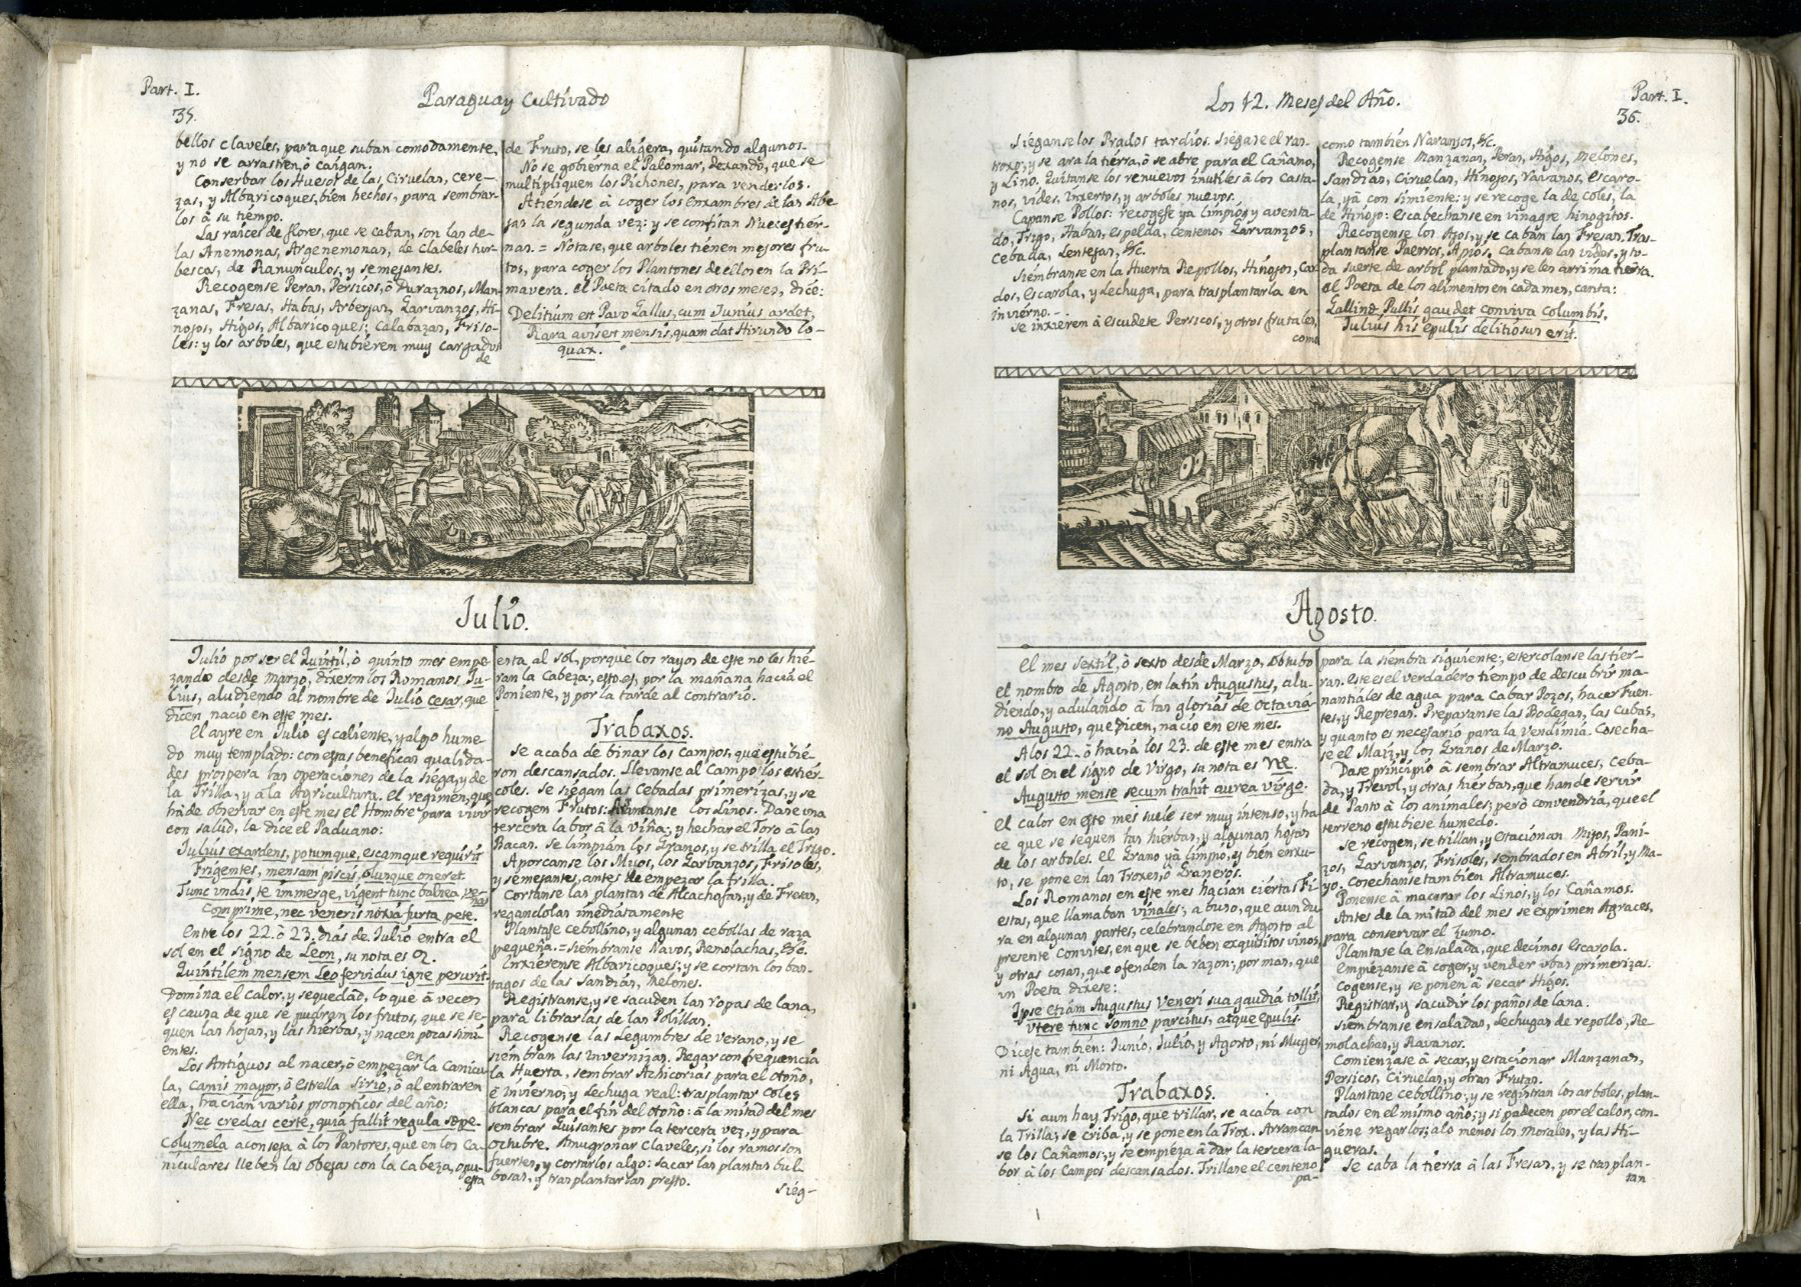 Part. I.
Paraguay Cultivado
35.
bellos claveles, para que suban comodamente,
y no se arrastren, ò caigan.
Conserbar los Huesos de las Ciruelas, cere-
zas, y Albaricoques, bien hechos, para sembrar-
los â su tiempo.
Las raices de flores, que se caban, son las de-
las Anemonas, Argenemonas, de Clabeles tur-
bescas, de Ranunculos, y semejantes.
Recogense Peras, Persicos, ò Duraznos, Man-
zanas, Fresas, Habas, Arberjas, Garvanzos, Hi-
nojos, Higos, Albaricoques; Calabazas, Friso-
les: y los arboles, que estubieren muy cargados
de
de Fruto, se les aligera, quitando algunos.
No se gobierna el Palomar, dexando, que se
multipliquen los Pichones, para venderlos.
Atiéndese â coger los Enxambres de las Abe-
jas la segunda vez: y se confitan Nueces tier-
nas. = Notase, que arboles tienen mejores fru-
tos, para coger los Plantones de ellos en la Pri-
mavera. el Poeta citado en otros meses, dice:
Delitium est Pavo Gallus, cum Junius ardet,
Rara avis est mensis, quam dat Hirundo lo-
quax.
Julio.
Julio por ser el Quintil, ò quinto mes empe-
zando desde Marzo, dixeron los Romanos Ju-
lius, aludiendo al nombre de Julio Cesar, que
dicen nació en este mes.
El ayre en Julio es caliente, y algo hume-
do muy templado: con estas beneficas qualida-
des prospera las operaciones de la siega, y de
la Trilla, y â la Agricultura. El regimen, que
hà de observar en este mes el Hombre para vivir
con salud, le dice el Paduano:
Julius exardens, potumque, escamque requirit
Frigentes, mensam piscis, olusque oneret.
Tunc indis, te immerge, vigent tunc balnea, ve-
nas
Comprime, nec veneris noxia furta pete.
Entre los 22. ò 23. dias de Julio entra el
sol en el signo de Leon, su nota es ♌.
Quintilem mensem Leo fervidus igne perurit.
Domina el calor, y sequedad, lo que â veces
es causa de que se pudran los frutos, que se se-
quen las hojas, y las hierbas, y nacen pocas simi-
entes.
Los Antiguos al nacer, ò empezar en la Canicu-
la, canis mayor, ò estrella Sirio, ò al entrar en
ella, hacian varios pronosticos del año:
Nec credas certe, quia fallit regula sæpe.
Columela aconseja â los Pastores, que en los Ca-
niculares lleben las obejas con la cabeza, opu-
esta
esta al sol, porque los rayos de este no les hie-
ran la Cabeza; esto es, por la mañana hacia el
Poniente, y por la tarde al contrario.
Trabaxos.
Se acaba de binar los campos, que estubie-
ron descansados. Llevanse al Campo los estier-
coles. Se siegan las Cebadas primerizas, y se
recogen Frutos: Arrimanse los Linos. Dase una
tercera labor â la viña; y hechar el Toro â las
Bacas. Se limpian los Granos, y se trilla el Trigo.
Aporcanse los Mijos, los Garbanzos, Frisoles,
y semejantes, antes de empezar la trilla.
Cortanse las plantas de Alcachofas, y de Fresas,
regandolas imediatamente
Plantase cebollino, y algunas cebollas de raza
pequeña. = Siembranse Navos, Remolachas, &c.
Inxiérense Albaricoques; y se cortan los bas-
tagos de las Sandias, Melones.
Registranse, y se sacuden las ropas de lana,
para librarlas de las Polillas.
Recogense las Legumbres de verano, y se
siembran las Invernizas. Regar con frequencia
la Huerta, sembrar Achicorias para el otoño,
è invierno; y Lechuga real: trasplantar Coles
blancas para el fin del otoño: â la mitad del mes
sembrar Guisantes por la tercera vez, y para
Octubre. Amugronar Claveles, si los ramos son
fuertes, y cortarlos algo: sacar las plantas bul-
bosas, y trasplantarlas presto.
Sieg-
Los 12. Meses del Año.
Part. I.
36.
Sieganse los Prados tardios. Siegase el ras-
troxo, y se ara la tierra, ò se abre para el Cañamo,
y Lino. Quitanse los renuevos inutiles â los casta-
nos, vides, inxertos, y arboles nuevos.
Capanse Pollos: recogese ya limpio, y aventa-
do, Trigo, Habas, espelda, centeno, Garvanzos,
Cebada, Lentejas, &c.
Siembranse en la Huerta Repollos, Hinojos, Car-
dos, Escarola, y Lechuga, para trasplantarla en
invierno.
Se inxieren â escudete Persicos, y otros frutales,
como
como tambien Naranjos, &c.
Recogense Manzanas, Peras, Higos, Melones,
Sandias, Ciruelas, Hinojos, Ravanos, escaro-
la, yâ con simiente; y se recoge la de coles, la
de Hinojo: Escabechanse en vinagre hinogitos.
Recogense los Ajos, y se caban las Fresas, Tras-
plantanse Puerros, Apios. Cabanse las vides, y to-
da suerte de arbol plantado, y se les arrima tierra.
El Poeta de los alimentos en cada mes, canta:
Gallinæ Pullis gaudet conviva columbis,
Julius his epulis delitiosus erit.
Agosto.
El mes Sextil, ò sexto desde Marzo, obtubo
el nombre de Agosto, en latin Augustus, alu-
diendo, y adulando â las glorias de Octavia-
no Augusto, que dicen, nacio en este mes.
A los 22. ò hacia los 23. de este mes entra
el sol en el signo de Virgo, su nota es ♍.
Augusto mense secum trahit aurea virgo.
El calor en este mes suele ser muy intenso, y ha-
ce que se sequen las hierbas, y algunas hojas
de los arboles. El Grano yâ limpio, y bien enxu-
to, se pone en las Troxes, ò Graneros.
Los Romanos en este mes hacian ciertas Fi-
estas, que llamaban vinales; abuso, que aun du-
ra en algunas partes, celebrandose en Agosto al
presente Convites, en que se beben exquisitos vinos,
y otras cosas, que ofenden la razon; por mas, que
un Poeta dixese:
Ipse etiam Augustus Veneri sua gaudia tollit,
Utere tunc somno parcitus, atque epulis.
Dicese tambien: Junio, Julio, y Agosto, ni Muger,
ni Agua, ni Mosto.
Trabaxos.
Si aun hay Trigo, que trillar, se acaba con
la Trilla; se criba, y se pone en la Trox. Arrancan-
se los Cañamos, y se empieza â dar la tercera la-
bor â los Campos descansados. Trillase el centeno
pa-
para la siembra siguiente; estercolanse las tier-
ras. Este es el verdadero tiempo de descubrir ma-
nantiales de agua para Cabar Pozos, hacer Fuen-
tes, y Represas. Preparanse las Bodegas, las Cubas,
y quanto es necesario para la Vendimia. Cosecha-
se el Maiz, y los Granos de Marzo.
Dase principio â sembrar Altramuces, Ceba-
da, y Trevol, y otras hierbas, que han de servir
de Pasto â los animales; pero convendria, que el
terreno estubiese humedo.
Se recogen, se trillan, y estacionan Mijos, Pani-
zos, Garvanzos, Frisoles, sembrados en Abril, y Ma-
yo. Cosechanse tambien Altramuces.
Ponense â macerar los Linos, y los Cañamos.
Antes de la mitad del mes se exprimen Agraces,
para conservar el Zumo.
Plantase la Ensalada, que decimos Escarola.
Empiezanse â coger, y vender ubas primerizas.
Cogense, y se ponen â secar Higos.
Registrar, y sacudir los paños de lana.
Siembranse ensaladas, Lechugas de repollo, Re-
molachas, y Ravanos.
Comienzase â secar, y estacionar Manzanas,
Persicos, Ciruelas, y otras Frutas.
Plantase cebollino; y se registran los arboles, plan-
tados en el mismo año; y si padecen por el calor, con-
viene regarlos; alo menos los Morales, y las Hi-
gueras.
Se caba la tierra â las Fresas, y se trasplan-
tan